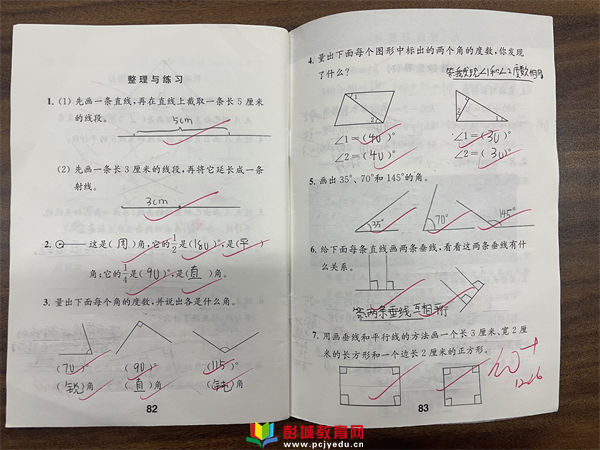 整理与练习
1. (1) 先画一条直线,再在直线上截取一条长 5 厘米
的线段。
5cm
(2) 先画一条长 3 厘米的线段,再将它延长成一条
射线。
3cm
2. 这是(周)角,它的1/2是(180)°,是(平)
角;它的1/4是(90)°,是(直)角。
3. 量出下面每个角的度数,并说出各是什么角。
(70)° (90)° (115)°
(锐)角 (直)角 (钝)角
82
4. 量出下面每个图形中标出的两个角的度数,你发现
了什么?
答:我发现∠1和∠2度数相同
1 2 2 1
∠1=(40)° ∠1=(30)°
∠2=(40)° ∠2=(30)°
5. 画出 35°、70°和 145°的角。
35° 70° 145°
6. 给下面每条直线画两条垂线,看看这两条垂线有什
么关系。
答:两条垂线互相平行
7. 用画垂线和平行线的方法画一个长 3 厘米、宽 2 厘
米的长方形和一个边长 2 厘米的正方形。
83
彭城教育网
www.pcjyedu.cn